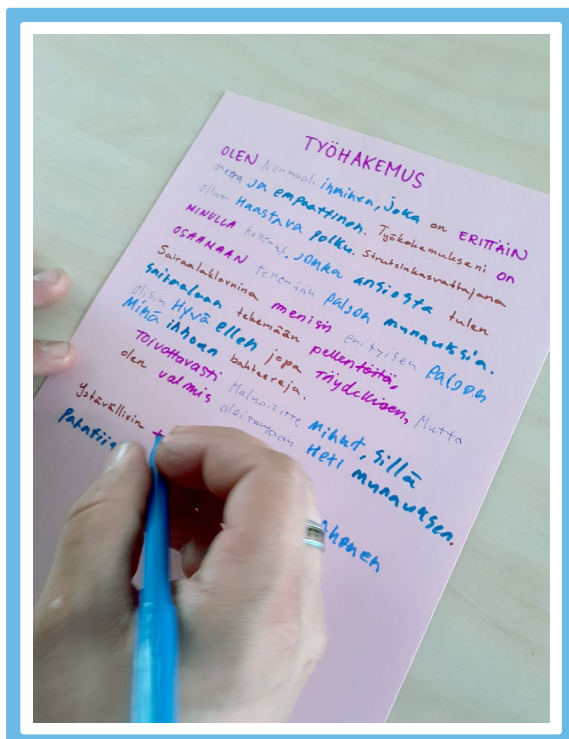 TYÖHAKEMUS
OLEN Normaali ihminen, joka on ERITTÄIN
ja empaattinen. Työkokemukseni ON
ollut Haastava polku. Strutsinkasvattajana
MINULLA kokemus, jonka ansiosta tulen
OSAAMAAN tekemään paljon munauksia.
Sairaalaklovnina menisin erityisen paljon
tekemään pellentöitä,
olisin Hyvä ellen jopa Täydellinen, Mutta
Minä inhoan bakteereja.
Toivottavasti Haluaisitte Minut, sillä
olen valmis aloittamaan Heti munauksen.
Ystävällisin